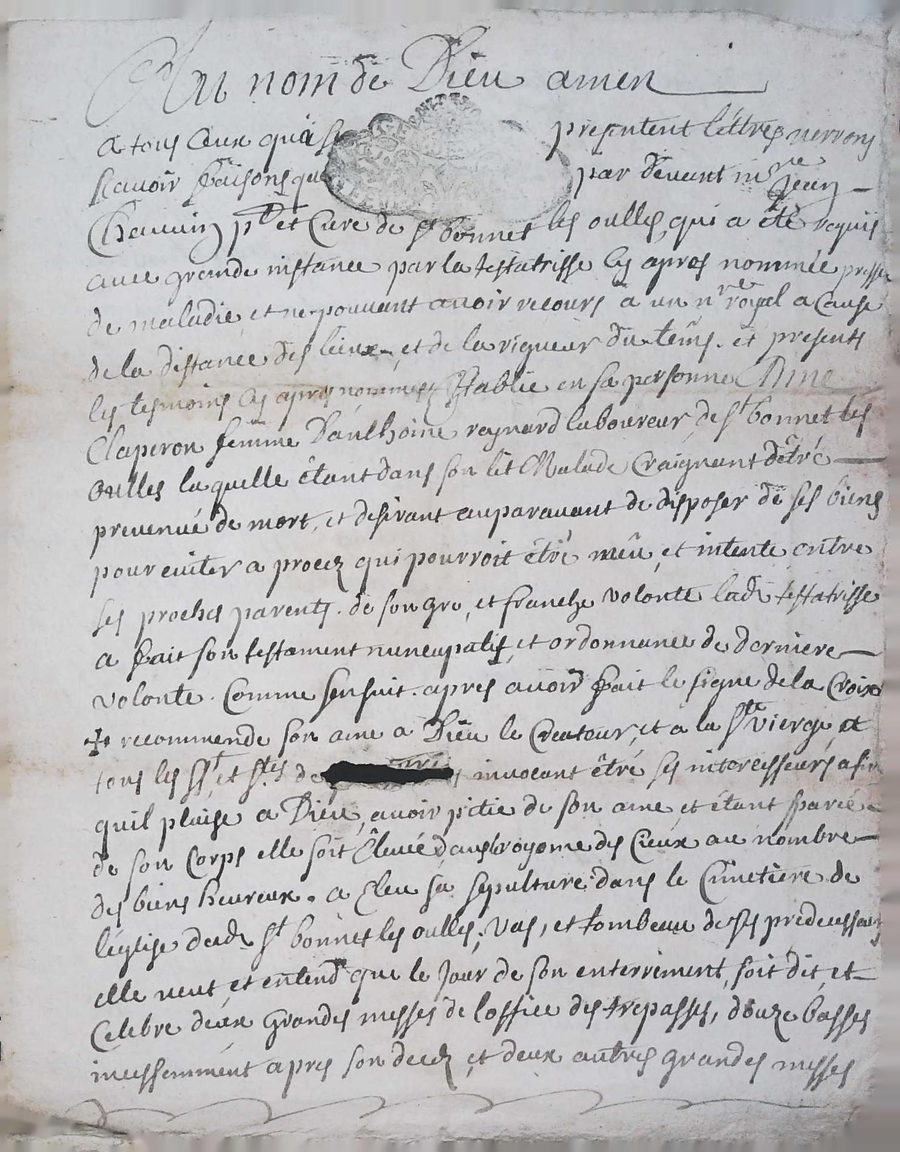 Au nom de Dieu amen
A tous ceux qui ces presentent lettres verrons
scavoir faisons que par devant mre Jean
Chauvin ptre et Curé de st bonnet les oulles, qui a été requis
avec grande instance par la testatrisse cy apres nommée presse
de maladie, et ne pouvant avoir recours a un nre royal a cause
de la distance des lieux et de la rigueur du tems. et presents
les tesmoins cy apres nommes, Etablie en sa personne Anne
Claperon femme D'anthoine reynard laboureur de st bonnet les
oulles laquelle êtant dans son lit Malade Craignant d'être
prevenuë de mort, et desirant auparavant de disposer de ses biens
pour eviter a procez qui pourroit être meû, et intente entre
ses proches parents. de son gre, et franche volonte ladte testatrisse
a fait son testament nuncupatif, et ordonnance de derniere
volonte. Comme sensuit. apres avoir fait le signe de la Croix
✠ recommende son ame a Dieu le Createur, et a la ste vierge et
tous les sts et stes de invocant être ses intercesseurs afin
quil plaise a Dieu, avoir pitie de son ame et êtant sparée
de son Corps elle soit Elevée dans royome des Cieux au nombre
des biens heureux. a Eleu sa sepulture dans le Cimetière de
l'église dudt st bonnet les oulles, vas, et tombeau de ses predecesseurs
elle veut et entend que le Jour de son enterriment, soit dit, et
Celebre deux grandes messes de l'office des trepasses, douze basses
incessemment apres son decez, et deux autres grandes messes